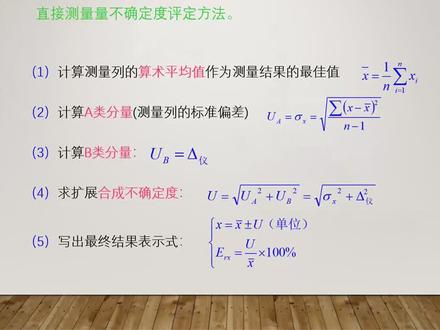 直接测量量不确定度评定方法。
(1) 计算测量列的算术平均值作为测量结果的最佳值 $\overline{x}=\frac{1}{n}\sum_{i=1}^{n}x_i$
(2) 计算A类分量(测量列的标准偏差) $U_A=\sigma_x=\sqrt{\frac{\sum(x-\overline{x})^2}{n-1}}$
(3) 计算B类分量: $U_B=\Delta_{仪}$
(4) 求扩展合成不确定度: $U=\sqrt{U_A{}^2+U_B{}^2}=\sqrt{\sigma_x{}^2+\Delta_{仪}^2}$
(5) 写出最终结果表示式: $\begin{cases}x=\overline{x}\pm U（单位）\\E_{rx}=\frac{U}{\overline{x}}\times100\%\end{cases}$